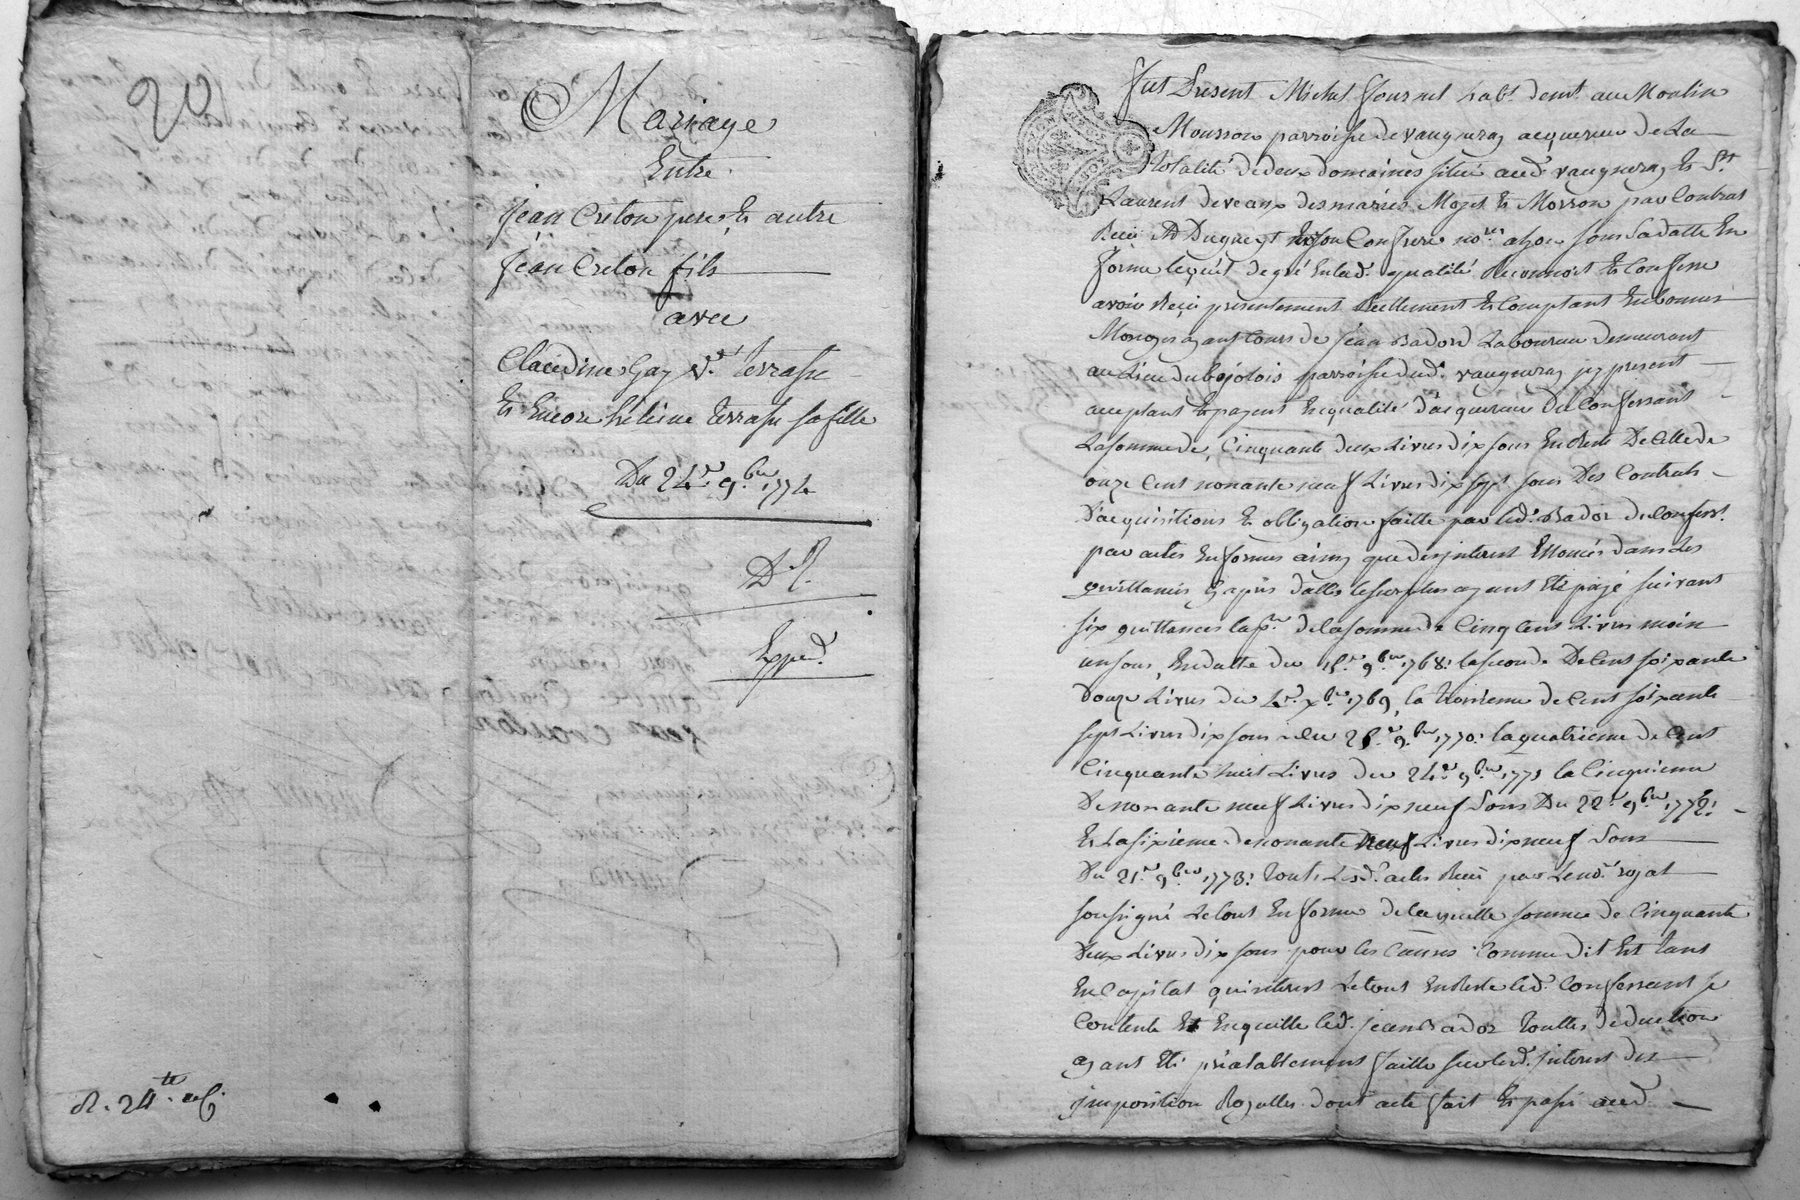 Mariage
Entre
jean Creton pere, Et autre
jean Creton fils
avec
Claudine Gay v.e terrasse
Et Encore heleine terrasse sa fille
Du 24.e 9.bre 1774
D.R.
Exped.
R. 24.tt
fut Present Michel fournel hab.t dem.t au Moulin
Mousson parroisse de vaugneray acquereur de La
totalité de deux domaines situé aud. vaugneray Et S.t
Laurent de veaux des mariés Et Morron par Contrat
Reçu M.e Dugueyt Et son Confrere no.res alyon sous Sa datte En
forme lequel de gré En lad. qualité Reconnoit Et Confesse
avoir Reçu presentement Reellement Et Comptant En bonnes
Monoyes ayant Cours de jean Bador Laboureur demeurant
au Lieu du bojolois parroisse dud. vaugneray jcy present
acceptant Et payant En qualité d'acquereur du Confessant
La somme de Cinquante deux Livres dix sous En Reste De Celle de
onze Cent nonante neuf Livres dix sept sous Des Contrats
D'acquisitions Et obligation faitte par led. Bador du Confess.t
par actes En formes ainsy que des jnterest Enoncés dans Les
quittances Cy après dattés le surplus ayant Eté payé suivant
six quittances la p.re de la somme de Cinq Cent Livres moin
un sous, En datte du 15.e 9.bre 1768: la seconde De Cent soixante
Douze Livres du 4.e x.bre 1769, la troisieme de Cent soixante
sept Livres dix sous du 25.e 9.bre 1770: la quatrieme de Cent
Cinquante huit Livres du 24.e 9.bre 1771 la Cinquieme
De nonante neuf Livres dix neuf Sous Du 22.e 9.bre 1772:
Et La sixieme de nonante Neuf Livres dix neuf Sous
Du 21.e 9.bre 1773: touts Lesd. actes Reçu par Le no.re royal
soussigné Le tout En forme de laquelle somme de Cinquante
Deux Livres dix sous pour les Causes Comme dit Est tant
En Capital qu'interest Le tout En Reste led. Confessant se
Contente Et En quitte led. jean Bador touttes deduction
ayant Eté préalablement faitte sur led. jnterest des
jmposition Royalles dont acte fait Et passé aud.